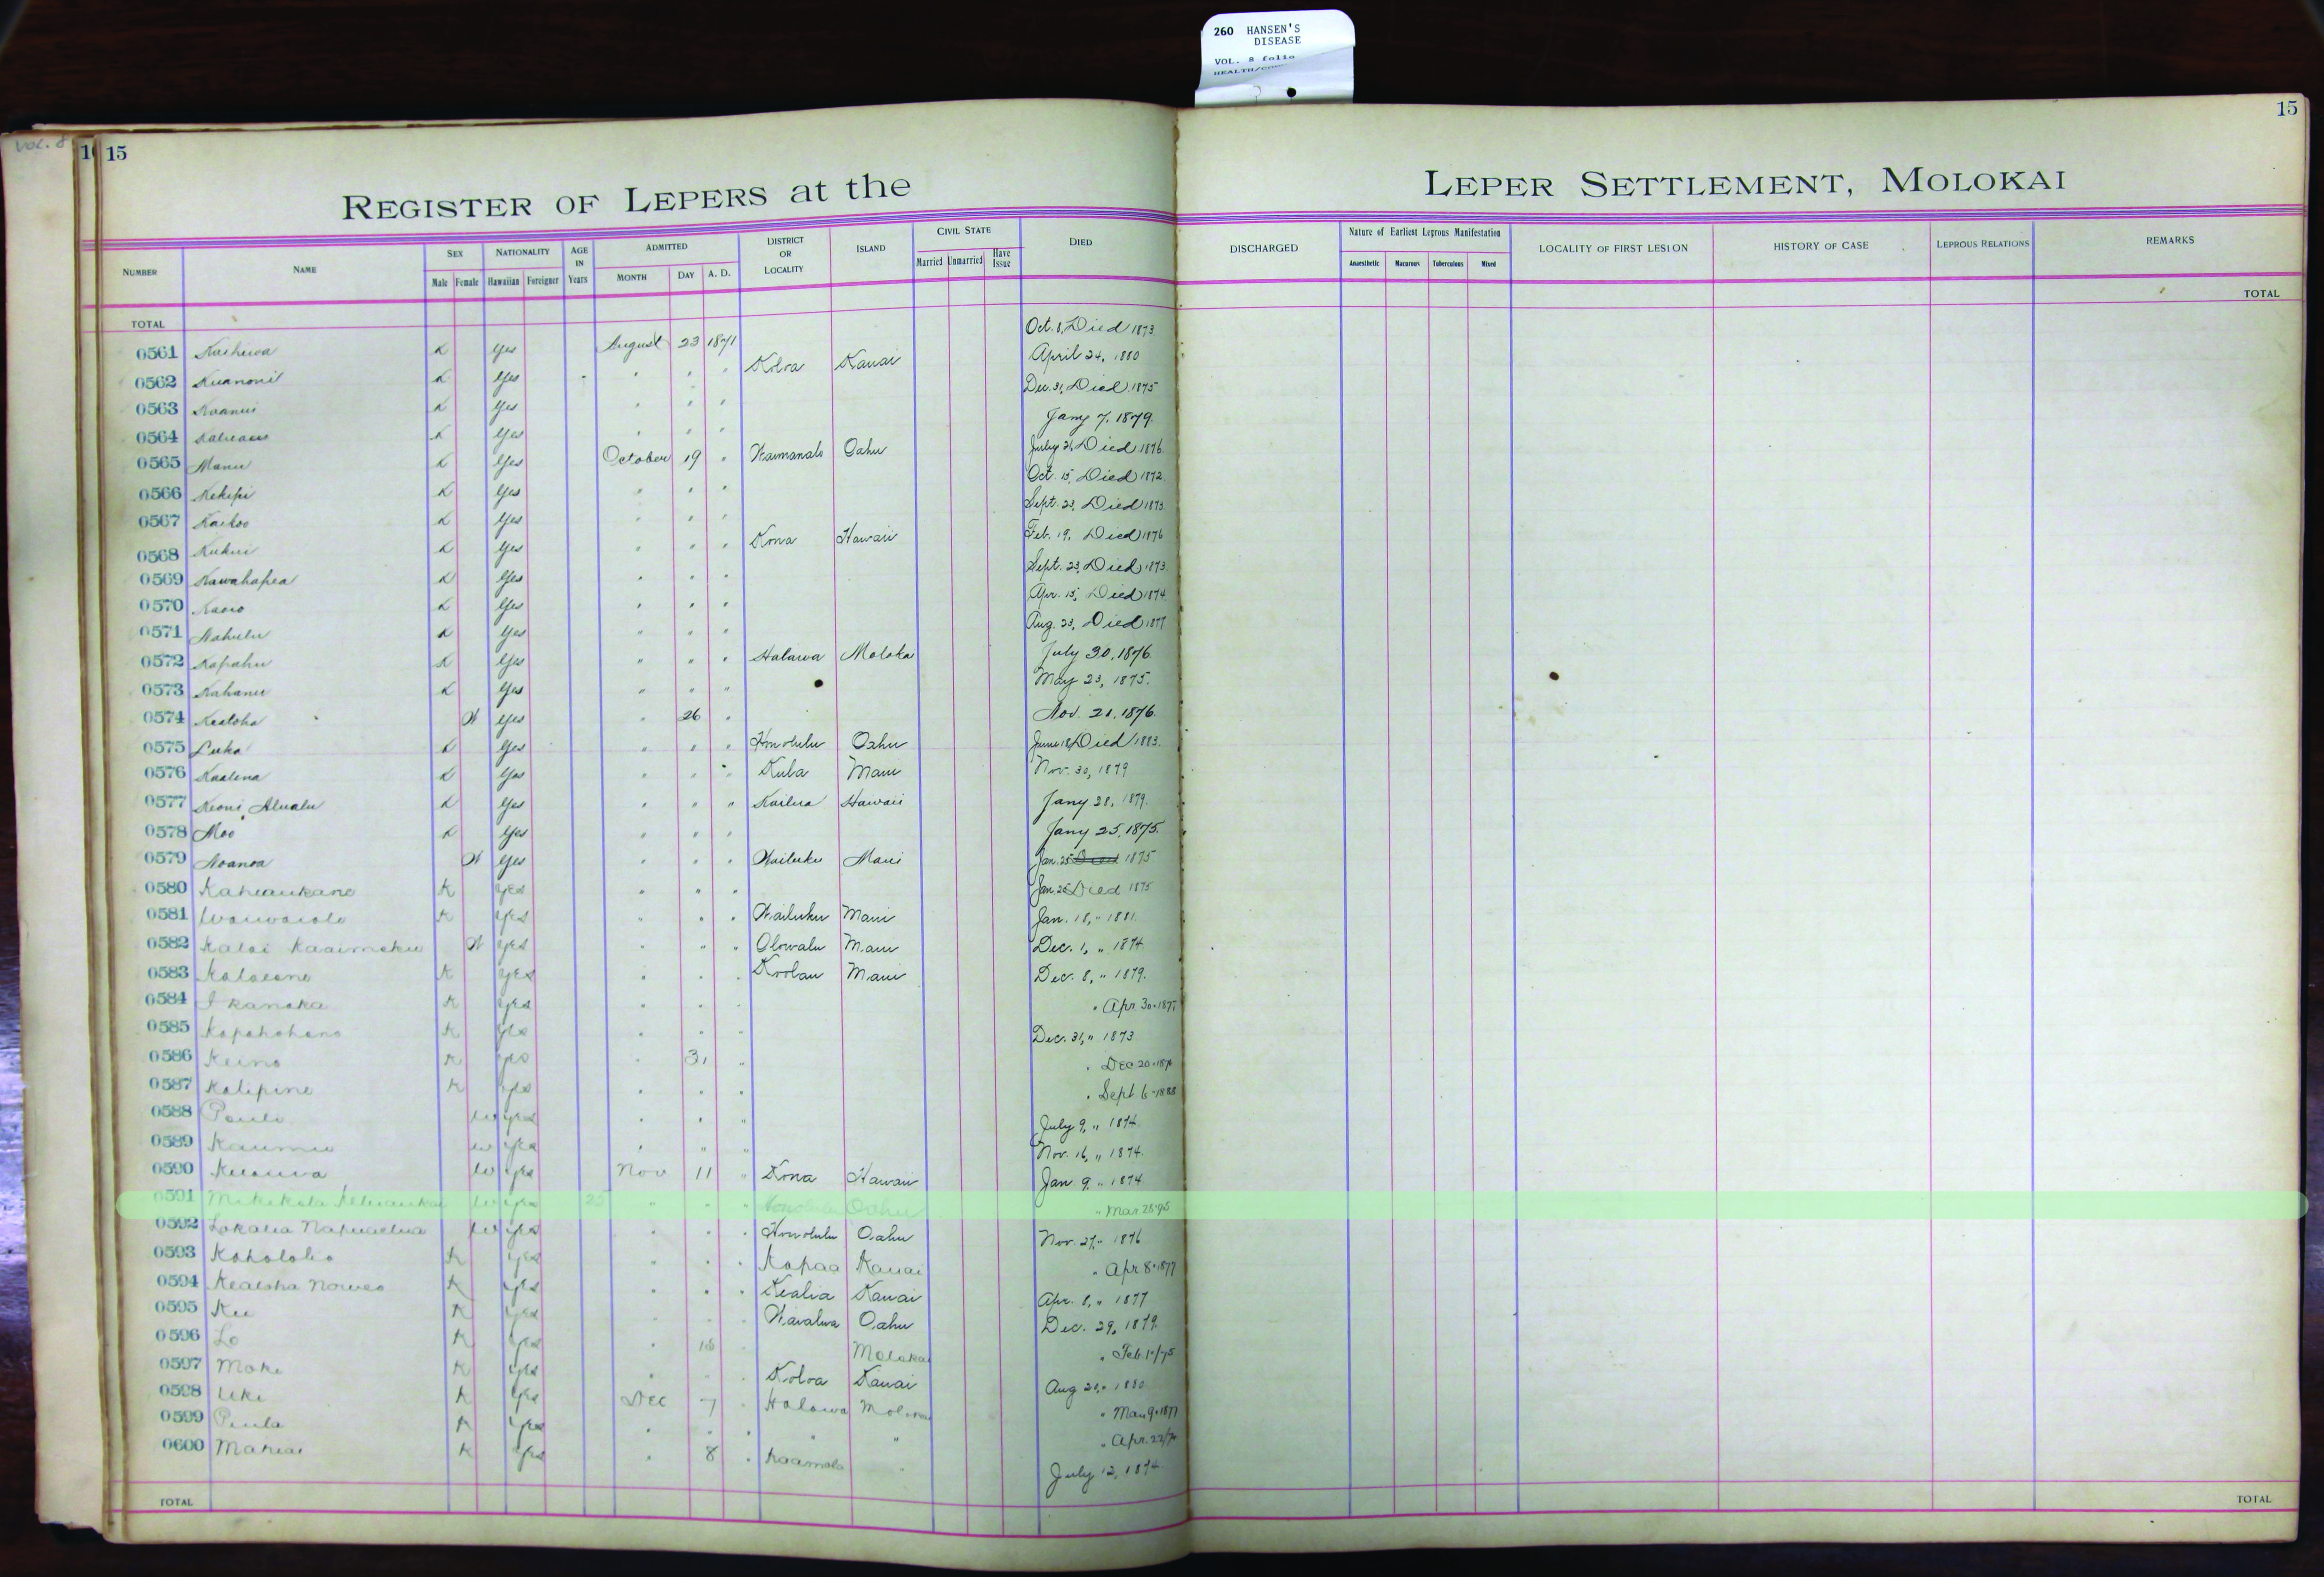 260 HANSEN'S
DISEASE
VOL. 8 folio
VOL. 8
15
15
REGISTER OF LEPERS at the LEPER SETTLEMENT, MOLOKAI
NUMBER NAME SEX Male Female NATIONALITY Hawaiian Foreigner AGE IN Years ADMITTED MONTH DAY A. D. DISTRICT OR LOCALITY ISLAND CIVIL STATE Married Unmarried Have Issue DIED
DISCHARGED Nature of Earliest Leprous Manifestation Anaesthetic Macurous Tuberculous Mixed LOCALITY OF FIRST LESION HISTORY OF CASE LEPROUS RELATIONS REMARKS
TOTAL TOTAL
0561 K Yes August 23 1871 Oct. 8, Died 1873
0562 K Yes " " " Koloa Kauai April 24, 1880
0563 K Yes " " " Dec. 31, Died 1875
0564 K Yes " " " Jany 7, 1879.
0565 Manu K Yes October 19 " Waimanalo Oahu July 21, Died 1876
0566 Kekipi K Yes " " " Oct. 15, Died 1872
0567 Kaikoo K Yes " " " Sept. 23, Died 1873
0568 Kukui K Yes " " " Kona Hawaii Feb. 19, Died 1876
0569 Kawahapea K Yes " " " Sept. 23, Died 1873
0570 K Yes " " " Apr. 15, Died 1874
0571 Nahulu K Yes " " " Aug. 23, Died 1877
0572 Kapahu K Yes " " " Halawa Moloka July 30, 1876
0573 Kahanu K Yes " " " May 23, 1875.
0574 Kealoha W Yes " 26 " Nov. 21, 1876.
0575 Luka K Yes " " " Honolulu Oahu June 18, Died 1883.
0576 Kaalena K Yes " " " Kula Maui Nov. 30, 1879
0577 Keoni Alualu K Yes " " " Kailua Hawaii Jany 28, 1879.
0578 Moo K Yes " " " Jany 25, 1875.
0579 Noanoa W Yes " " " Wailuku Maui Jan. 25 Died 1875
0580 Kaheaukane K Yes " " " Jan. 25 Died 1875
0581 Waiwaiole K Yes " " " Wailuku Maui Jan. 18, " 1881.
0582 Kalai Kaaimoku W Yes " " " Olowalu Maui Dec. 1, " 1874
0583 K Yes " " " Koolau Maui Dec. 8, " 1879.
0584 I kanaka K Yes " " " " Apr 30-1877
0585 K Yes " " " Dec. 31, " 1873
0586 Keino K Yes " 31 " " Dec 20-
0587 Kalipine K Yes " " " " Sept 6-1888
0588 Pauli W Yes " " " July 9, " 1874.
0589 Kaumu W Yes " " " Nov. 16, " 1874.
0590 W Yes Nov 11 " Kona Hawaii Jan 9, " 1874
0591 W Yes 25 " " " Honolulu Oahu " Mar. 28-95
0592 W Yes " " " Honolulu Oahu Nov. 27, " 1876
0593 Koholoho K Yes " " " Kapaa Kauai " Apr 8-1877
0594 Kealoha K Yes " " " Kealia Kauai Apr. 8, " 1877
0595 Ku K Yes " " " Waialua Oahu Dec. 29, 1879.
0596 Lo K Yes " 18 " Molokai " Feb. 1"/75
0597 Moke K Yes " " " Koloa Kauai Aug 21, " 1880
0598 Uki K Yes Dec 7 " Halawa Molokai " Mar 9-1877
0599 Paula K Yes " " " " " " Apr. 22/
0600 Mahiai K Yes " 8 " Kaamola " July 12, 1874.
TOTAL TOTAL